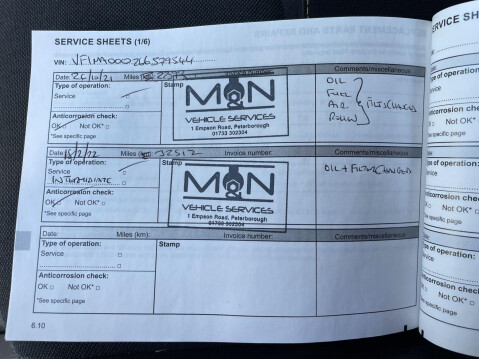 SERVICE SHEETS (1/6)
VIN:
Date: Miles
Comments/miscellaneous
Type of operation: Stamp
Service
OIL
FUEL
AIR
FILTERS CHANGED
M&N
VEHICLE SERVICES
1 Empson Road, Peterborough
01733 302304
Anticorrosion check:
OK □ Not OK* □
*See specific page
Date: Miles Invoice number:
Comments/miscellaneous
Type of operation: Stamp
Service
INTERMEDIATE
OIL + FILTER CHANGED
M&N
VEHICLE SERVICES
1 Empson Road, Peterborough
01733 302304
Anticorrosion check:
OK □ Not OK* □
*See specific page
Date: Miles (km): Invoice number: Comments/miscellaneous
Type of operation: Stamp
Service □
□
Anticorrosion check:
OK □ Not OK* □
*See specific page
6.10
SERVICE SH
VIN:
Date:
Type of operation:
Service
Anticorrosion check
OK □
*See specific page
Date:
Type of operation
Service
Anticorrosion che
OK □
*See specific page
Date:
Type of operation
Service
Anticorrosion check
OK □
*See specific page